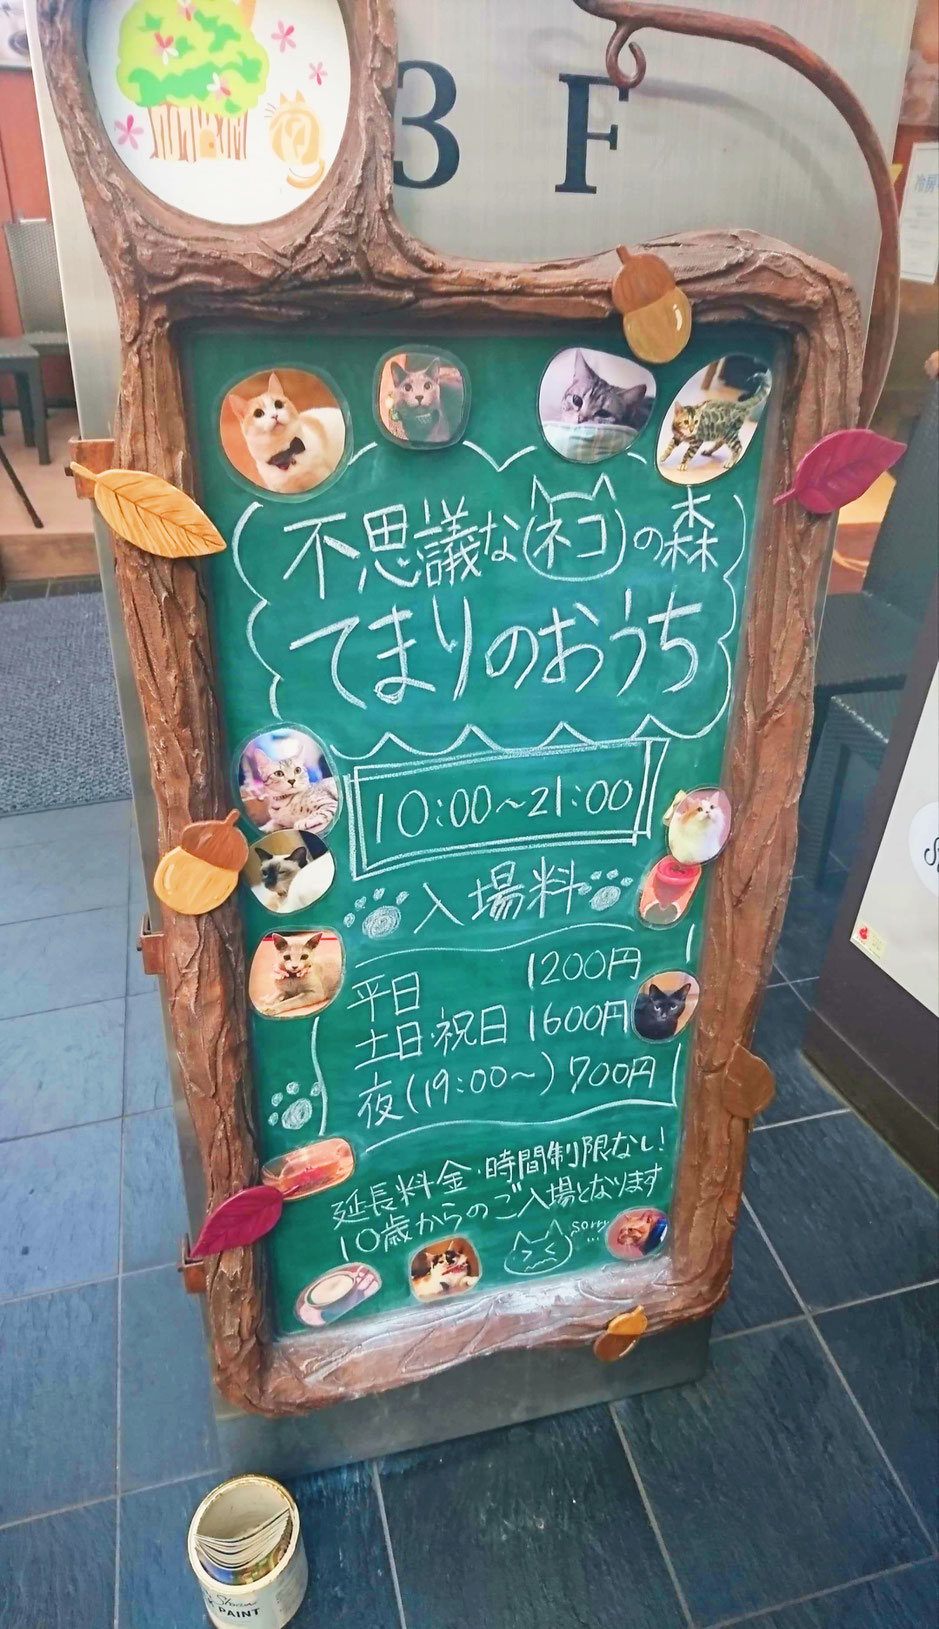 3 F
不思議なネコの森
てまりのおうち
10:00〜21:00
入場料
平日 1200円
土日・祝日 1600円
夜(19:00〜) 700円
延長料金・時間制限なし!
10歳からのご入場となります
sorry...
冷房
Sloan
PAINT